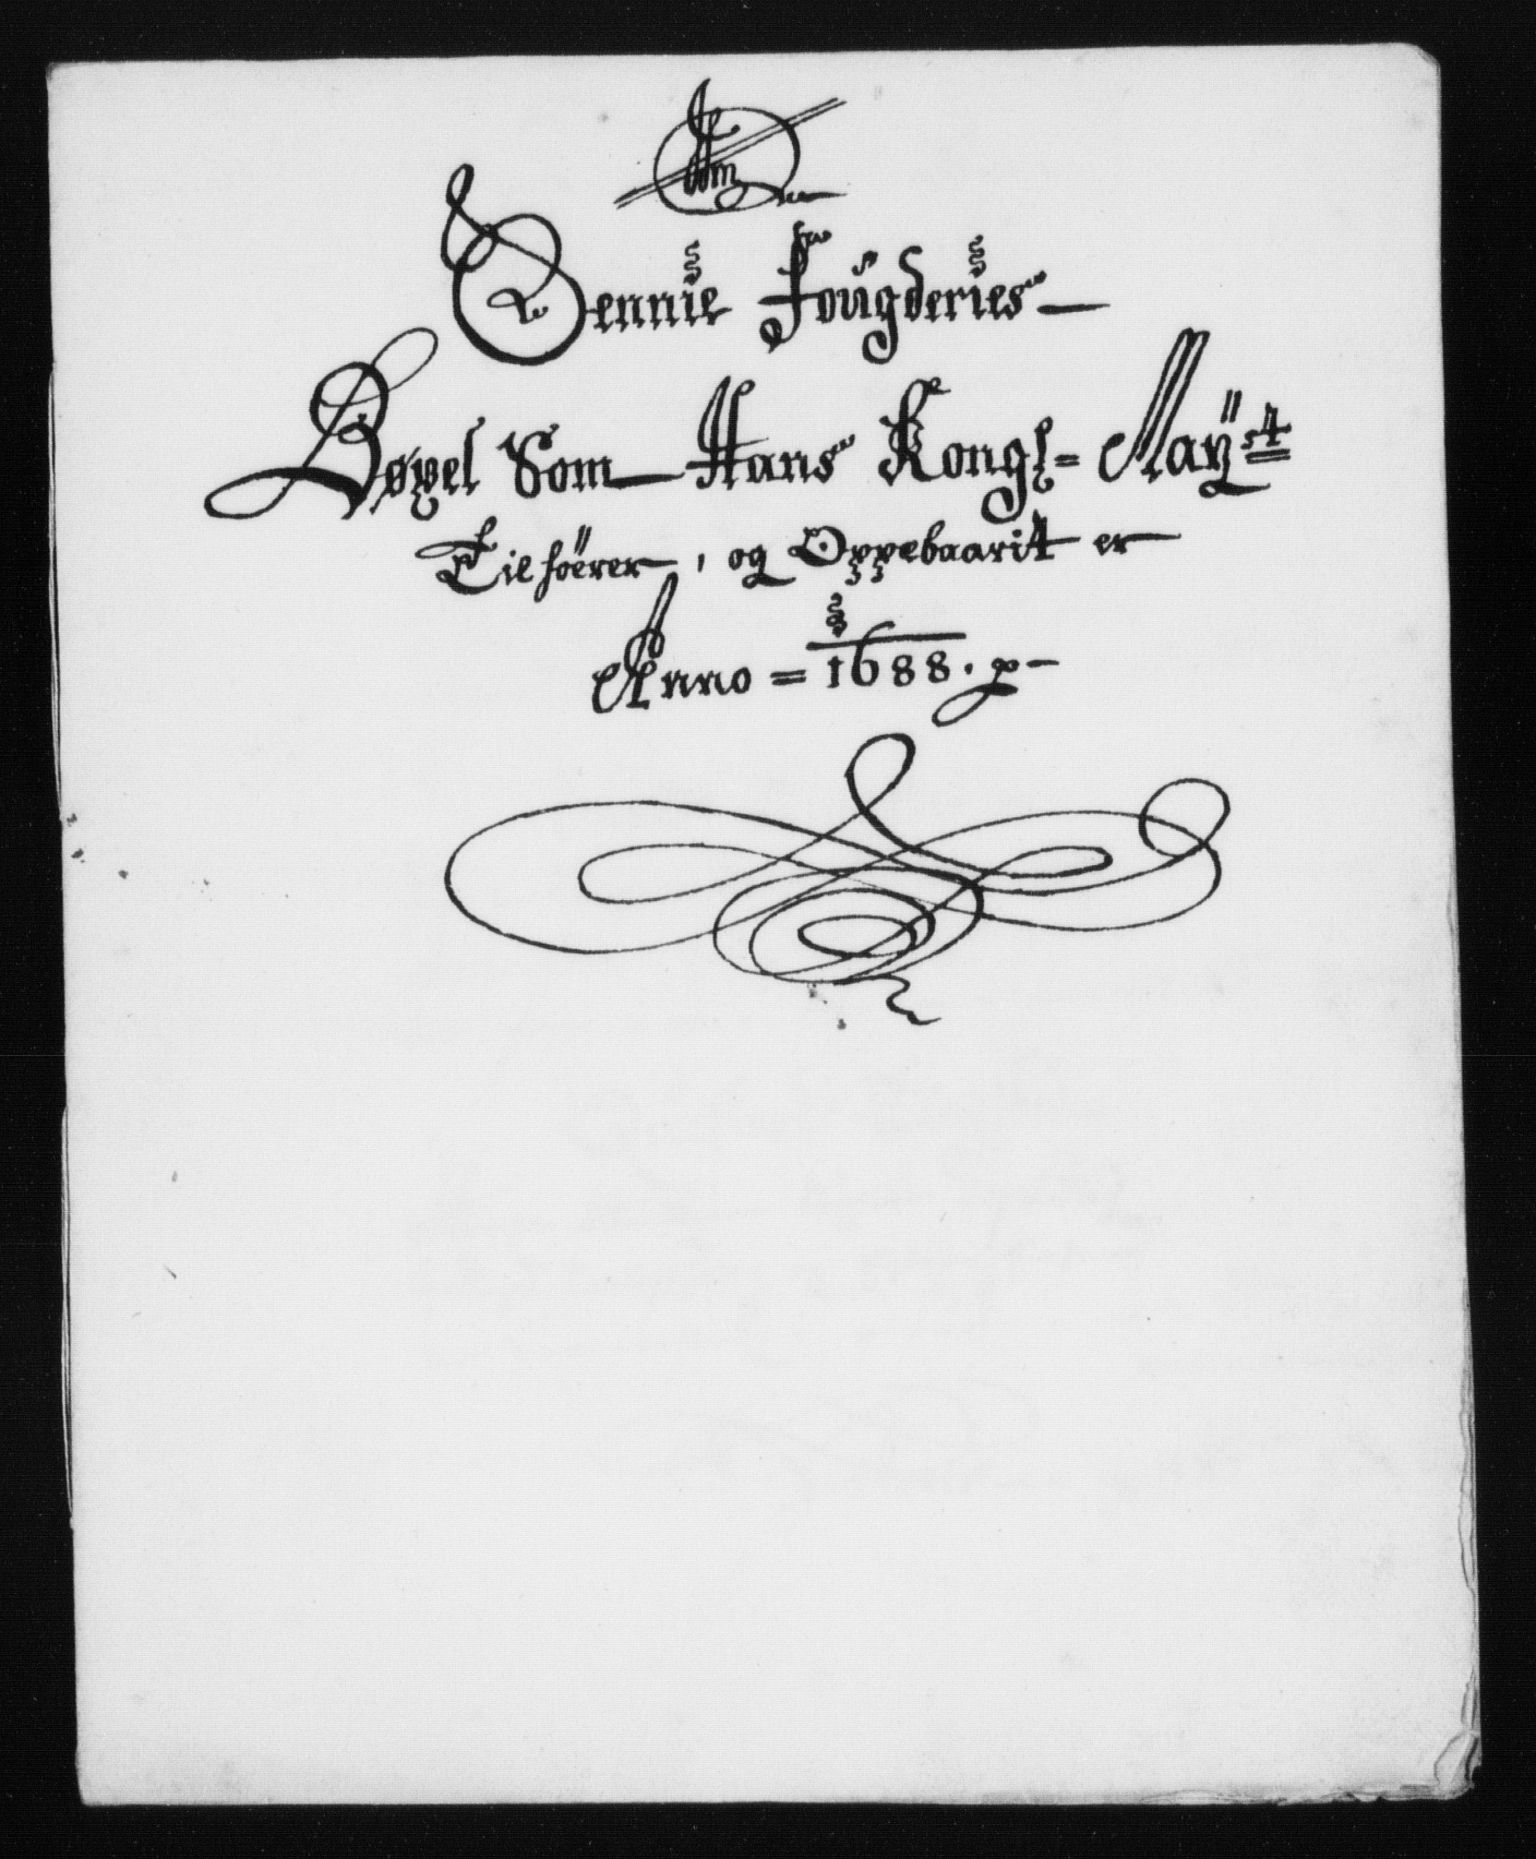 Sennie Fougderies
Bøxel Som Hans Kongl= May:t
Tilhörer, og Oppebaarit er
Anno = 1688.